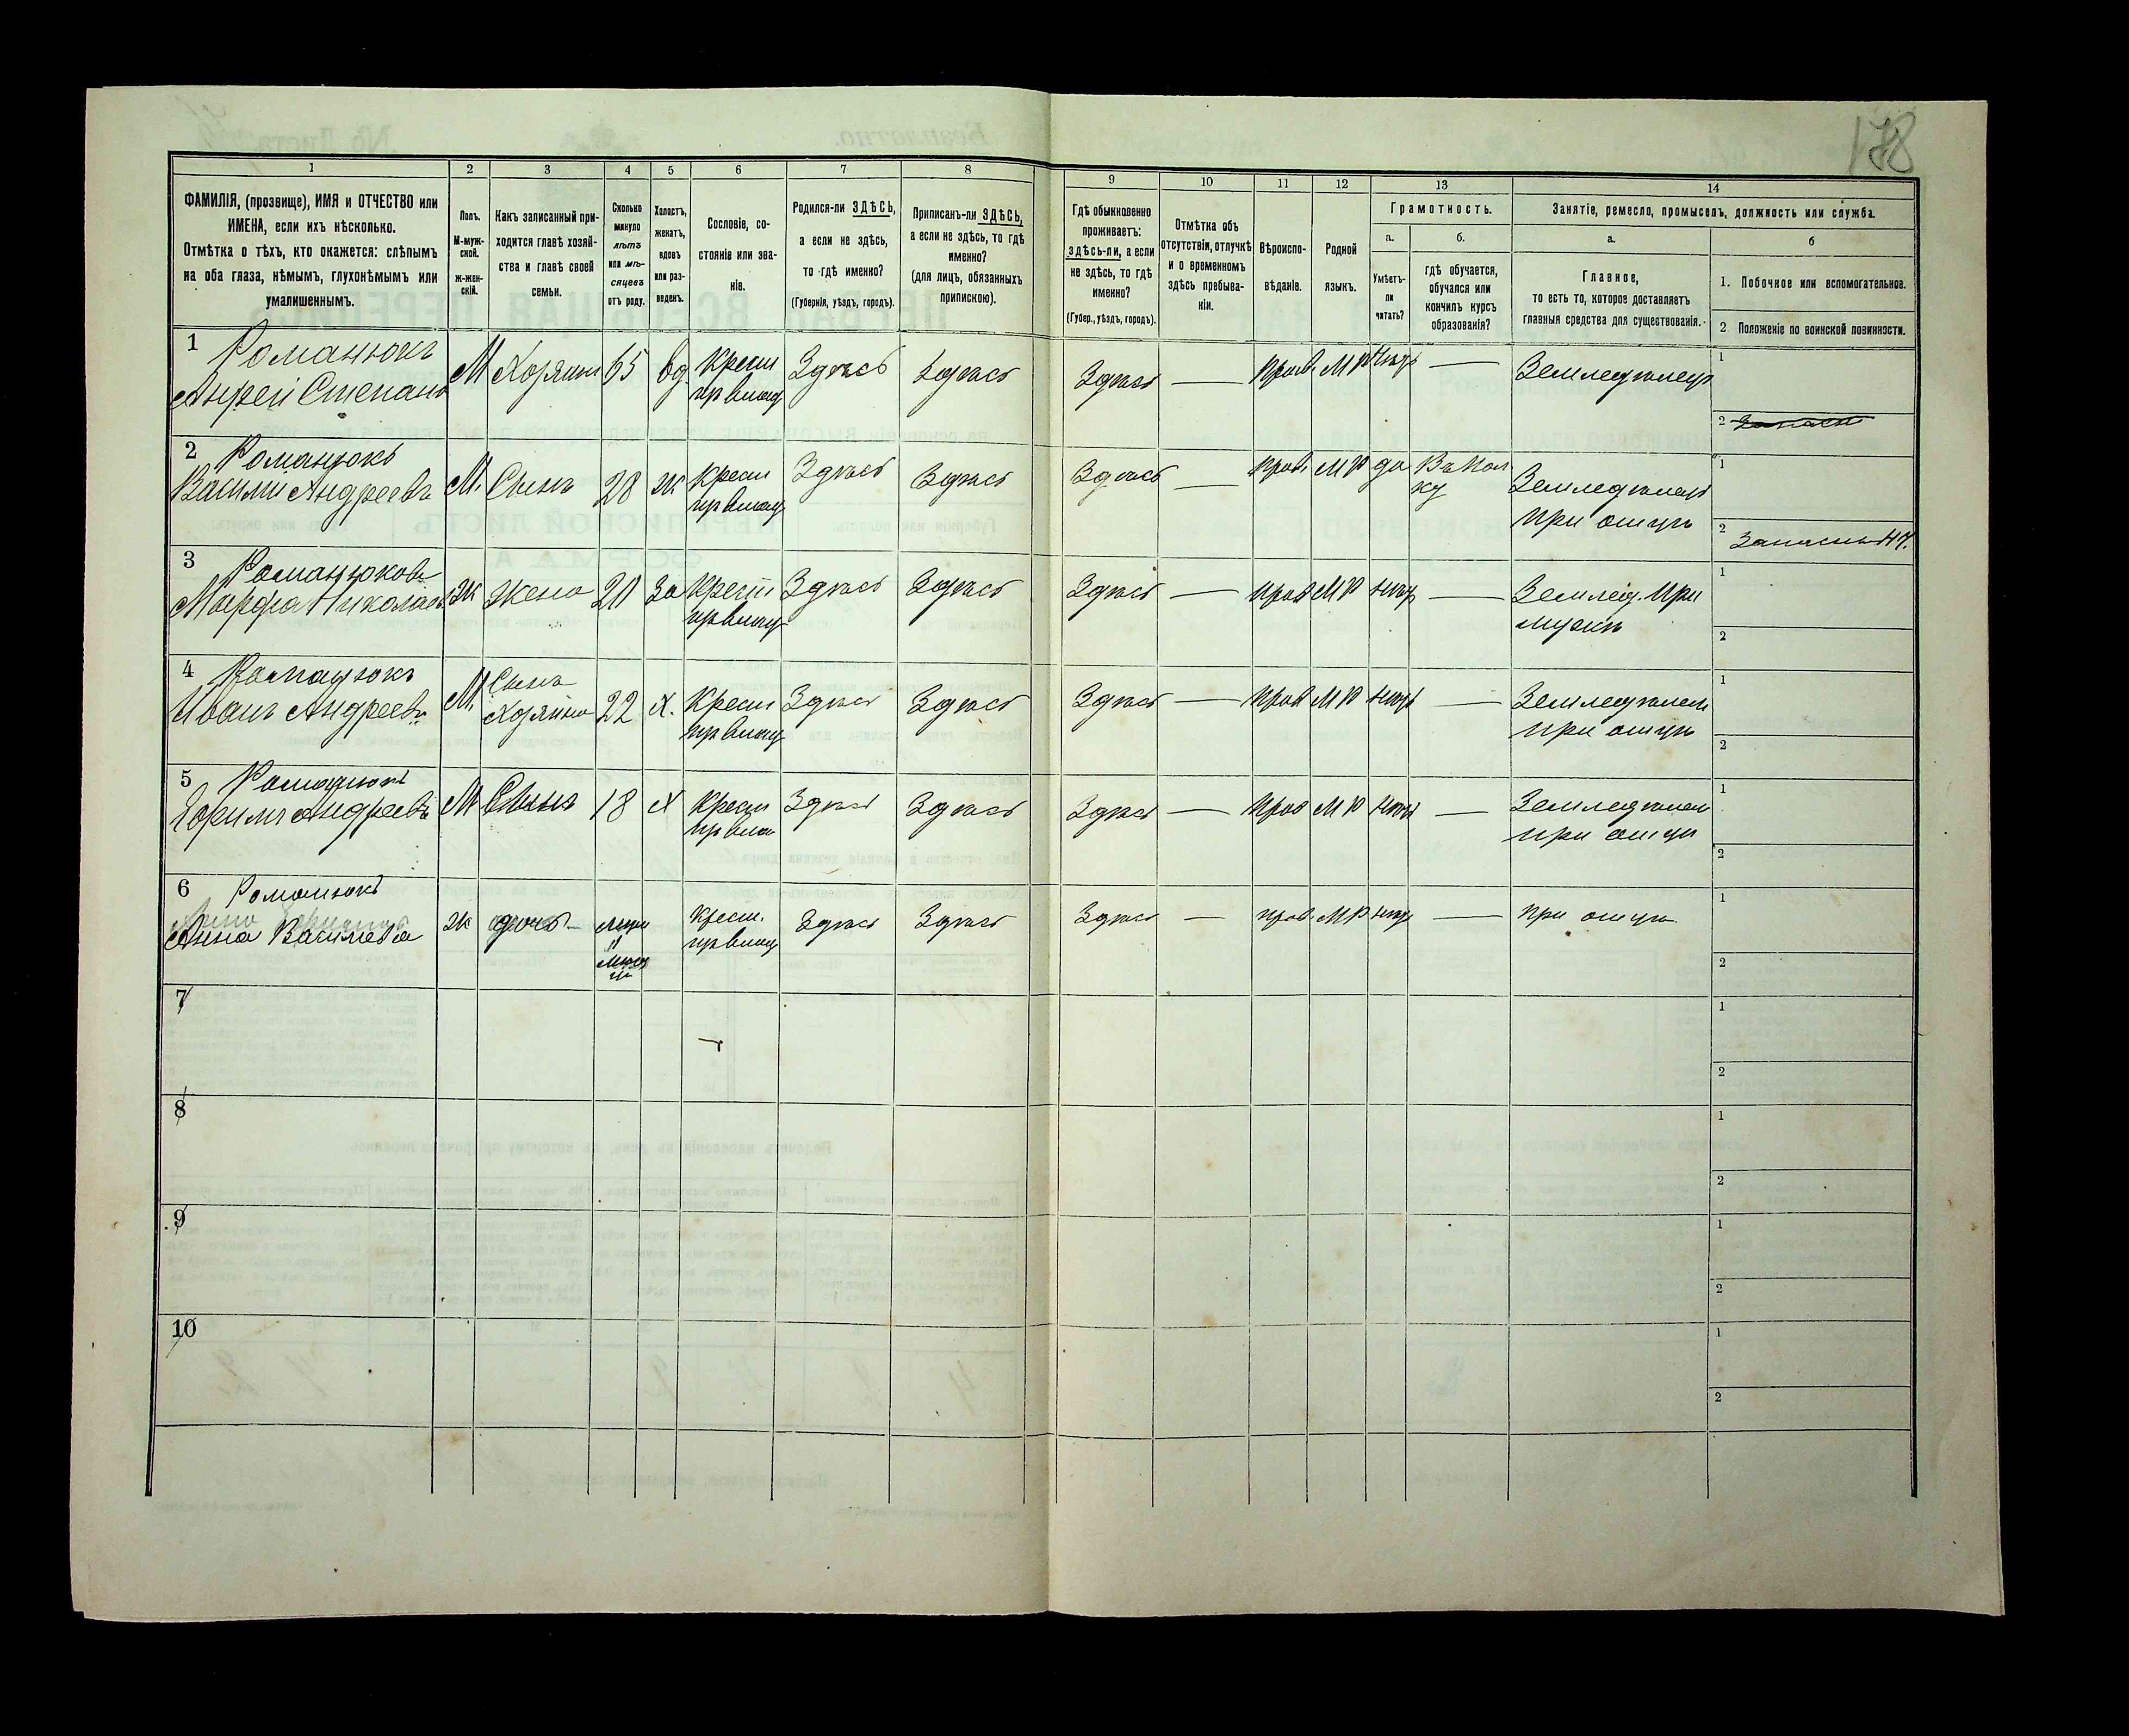 178
1
2
3
4
5
6
7
8
9
10
11
12
13
14
ФАМИЛІЯ, (прозвище), ИМЯ и ОТЧЕСТВО или
ИМЕНА, если ихъ нѣсколько.
Отмѣтка о тѣхъ, кто окажется: слѣпымъ
на оба глаза, нѣмымъ, глухонѣмымъ или
умалишеннымъ.
Полъ.
М-муж-
ской.
ж-жен-
скій.
Какъ записанный при-
ходится главѣ хозяй-
ства и главѣ своей
семьи.
Сколько
минуло
лѣтъ
или мѣ-
сяцевъ
отъ роду.
Холостъ,
женатъ,
вдовъ
или раз-
веденъ.
Сословіе, со-
стояніе или зва-
ніе.
Родился-ли ЗДѢСЬ,
а если не здѣсь,
то гдѣ именно?
(Губернія, уѣздъ, городъ).
Приписанъ-ли ЗДѢСЬ,
а если не здѣсь, то гдѣ
именно?
(для лицъ, обязанныхъ
припискою).
Гдѣ обыкновенно
проживаетъ:
здѣсь-ли, а если
не здѣсь, то гдѣ
именно?
(Губер., уѣздъ, городъ).
Отмѣтка объ
отсутствіи, отлучкѣ
и о временномъ
здѣсь пребыва-
ніи.
Вѣроиспо-
вѣданіе.
Родной
языкъ.
Грамотность.
а.
Умѣетъ-
ли
читать?
б.
гдѣ обучается,
обучался или
кончилъ курсъ
образованія?
Занятіе, ремесло, промыселъ, должность или служба.
а.
Главное,
то есть то, которое доставляетъ
главныя средства для существованія.
б
1. Побочное или вспомогательное.
2 Положеніе по воинской повинности.
1 Романюкъ
Андрей Степанъ М Хозяинъ 65 вд. Крест Здѣсь Здѣсь Здѣсь — Прав. М Р нѣтъ — Земледѣлецъ 1
2
2 Романюкъ
Васили Андреевъ М. Сынъ 28 ж Крест Здѣсь Здѣсь Здѣсь — Прав. М Р да Земледѣлецъ 1
при отцѣ 2
3 Романюкова
Марфа Николаев Ж жена 20 за Крест Здѣсь Здѣсь Здѣсь — Прав М Р нѣтъ — Землед. при 1
мужѣ 2
4 Романюкъ
Иванъ Андреевъ М. Сынъ
Хозяина 22 х. Крест Здѣсь Здѣсь Здѣсь — Прав М Р нѣтъ — Земледѣлец 1
при отцѣ 2
5 Романюкъ
Ефимъ Андреевъ М Сынъ 18 х Крест Здѣсь Здѣсь Здѣсь — Прав М Р нѣтъ — Земледѣлец 1
при отцѣ 2
6 Романюкъ
Анна Василева ж дочь Крест. Здѣсь Здѣсь Здѣсь — прав. М Р нѣтъ — при отцѣ 1
2
7 1
2
8 1
2
9 1
2
10 1
2